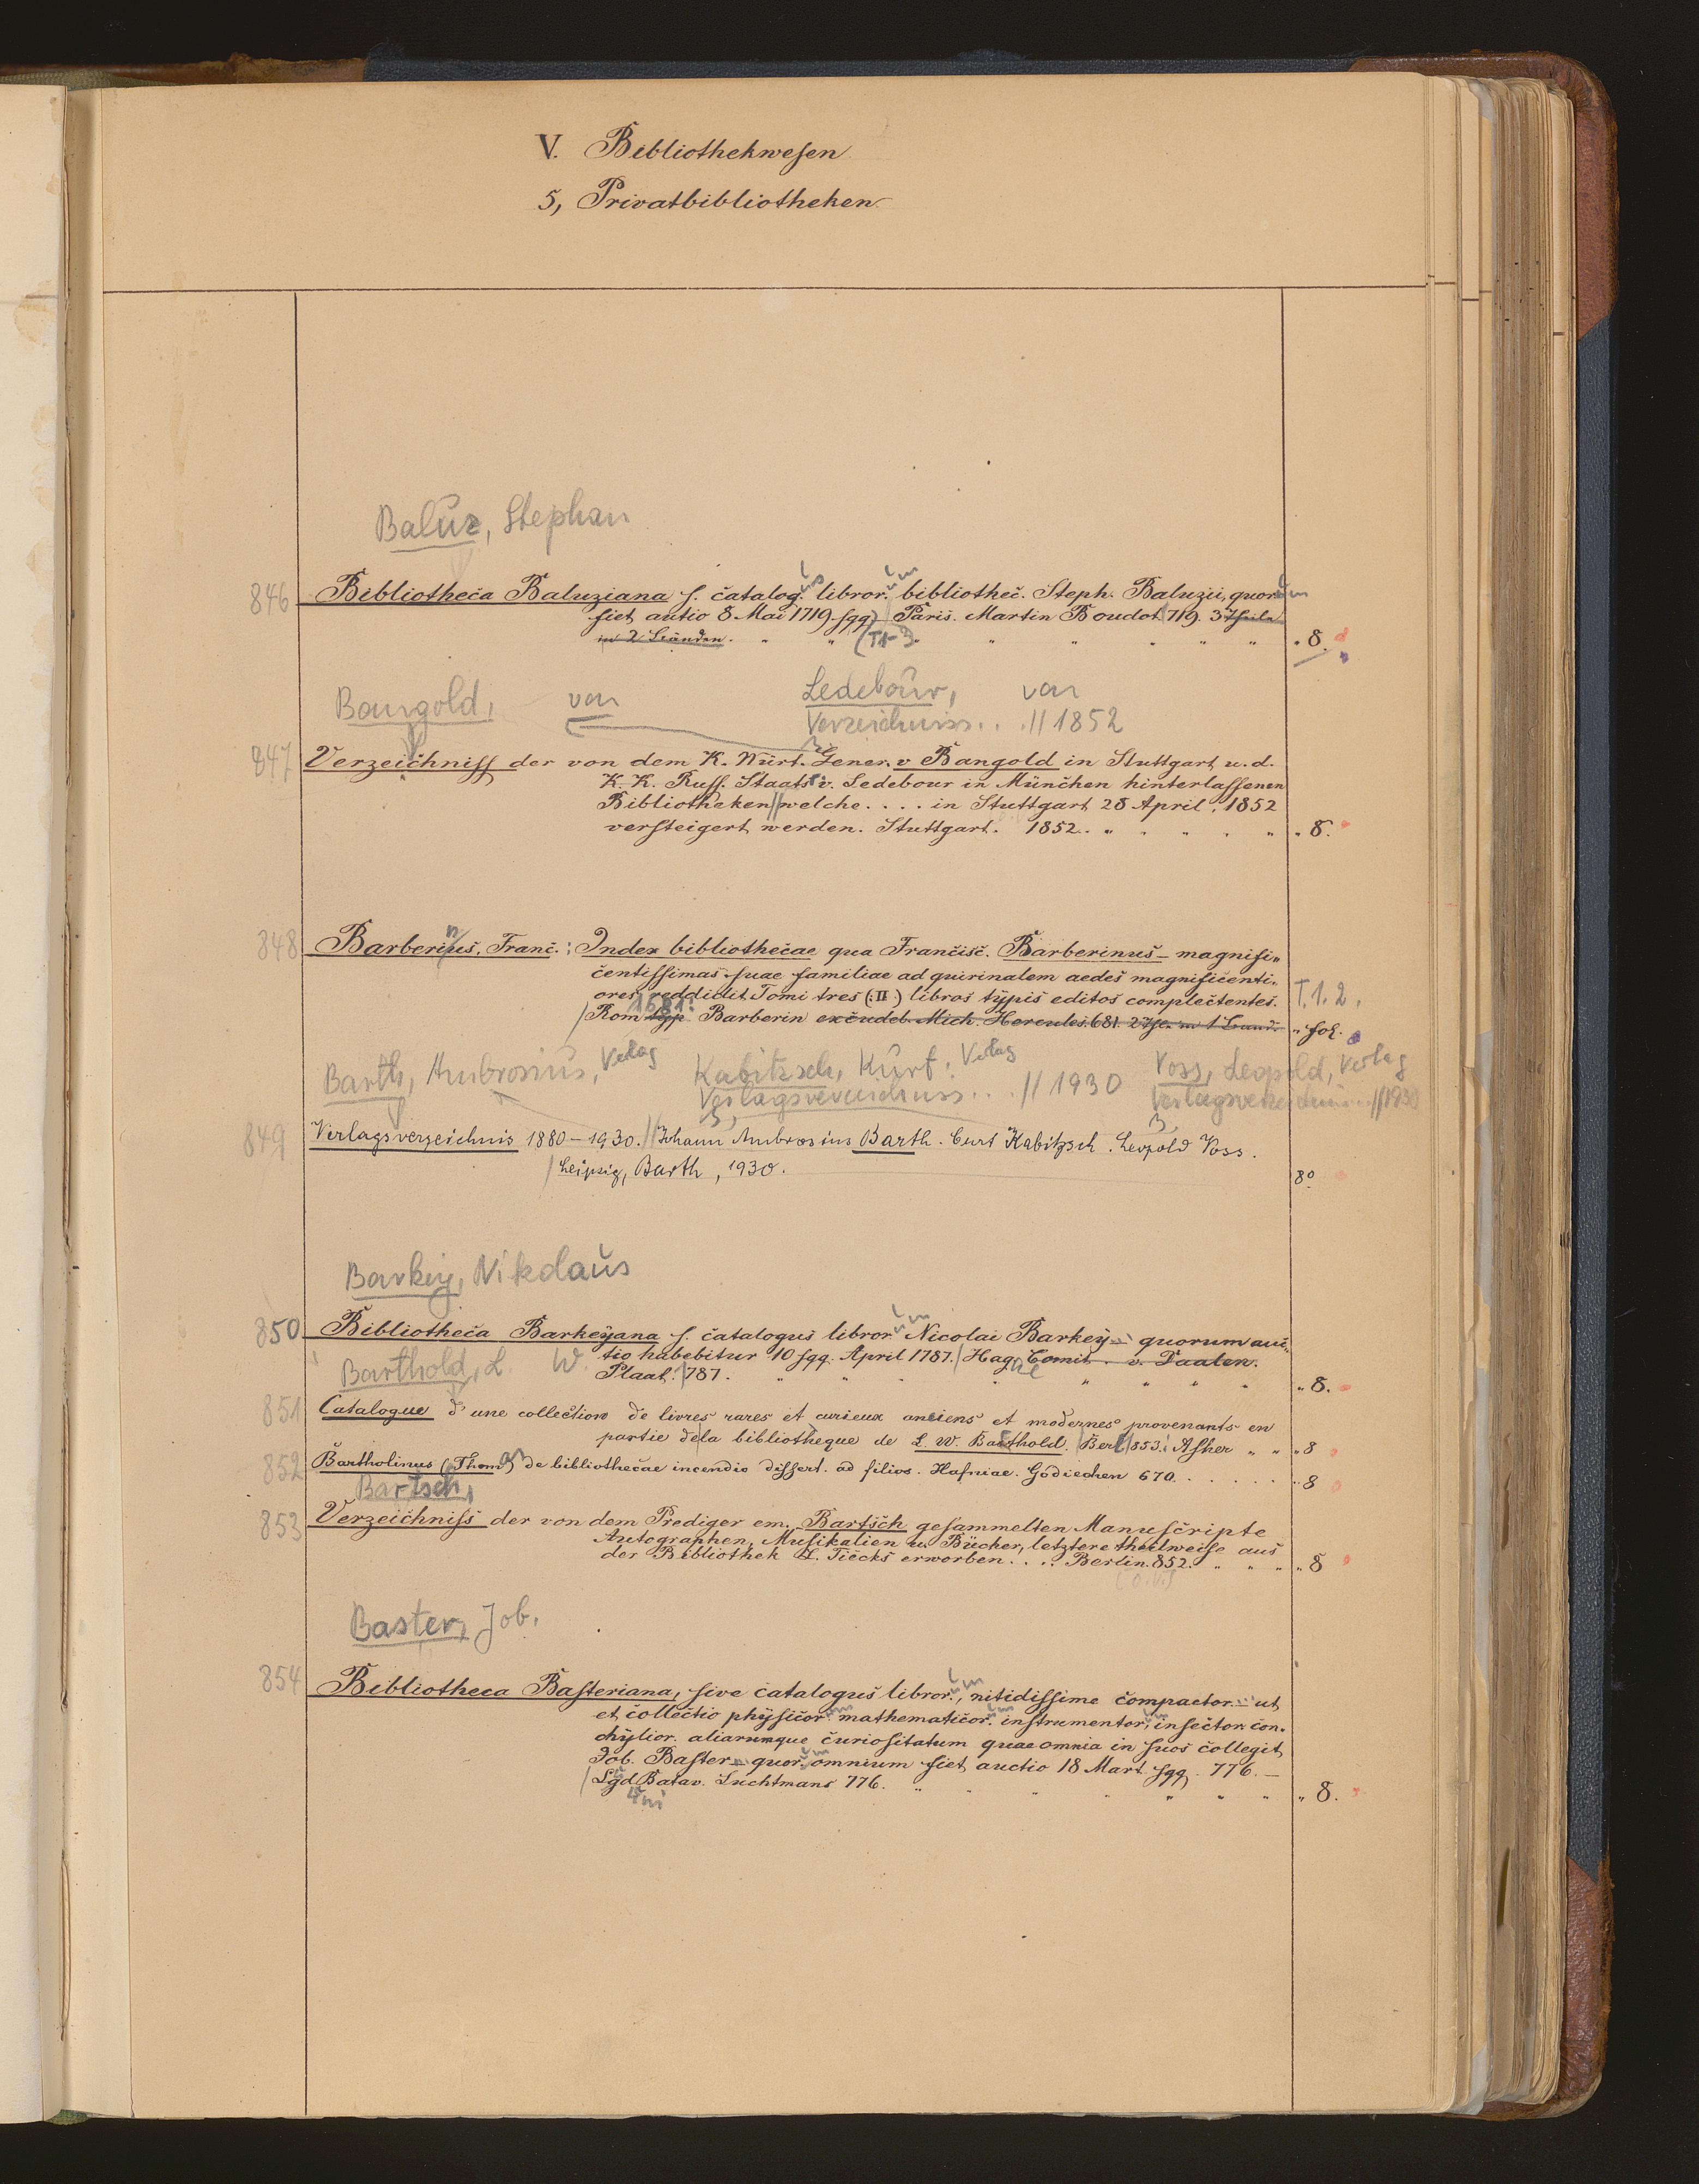 V. Bibliothekwesen
5, Privatbibliotheken
Baluz, Stephan
846 Bibliotheca Baluziana s. catalog.us libror.um bibliothec. Steph. Baluzii, quorum
fiet autio 8 Mai 1719 sqq) Paris. Martin Boudot 719. 3 Theile
in 2 Bänden. (T. 1-3. „ 8.
Bangold, von Ledebour, von
Verzeichniss.. // 1852
847 Verzeichniss der von dem K. Würt. Gener. v Bangold in Stuttgart u. d.
K. K. Russ. Staatsr v. Ledebour in München hinterlassenen
Bibliotheken // welche .... in Stuttgart 28 April. 1852
versteigert werden. Stuttgart. 1852. „ 8.
848 Barberinus, Franc.: Index bibliothecae qua Francisc. Barberinus – magnifi„
centissimas suae familiae ad quirinalem aedes magnificenti„
ores reddidit. Tomi tres (: II :) libros typis editos complectentes. T. 1. 2.
1681.
/ Rom typ Barberin excudeb. Mich. Hercules. 681. 2 Thle in 1 Band. „ fol.
Barth, Ambrosius, Verlag Kabitzsch, Kurt, Verlag Voss, Leopold, Verlag
Verlagsverzeichniss.. // 1930 Verlagsverzeichnis.. // 1930
849 Verlagsverzeichnis 1880 – 1930. // Johann Ambrosius Barth. Curt Kabitzsch. Leopold Voss.
/ Leipzig, Barth, 1930. 8°
Barkey, Nikolaus
850 Bibliotheca Barkeyana s. catalogus libror.um Nicolai Barkey – quorum auc„
tio habebitur 10 sqq. April 1787. / Hagae Comit. v. Daalen.
Barthold, L. W. Plaat. 787. „ 8.
851 Catalogue d'une collection de livres rares et curieux anciens et modernes provenants en
partie de la bibliotheque de L. W. Barthold. / Berl / 853. Asher „ „ „ 8
852 Bartholinus (Thom.) de bibliothecae incendio dissert. ad filios. Hafniae. Godiechen 670. „ 8
Bartsch,
853 Verzeichniss der von dem Prediger em. Bartsch gesammelten Manuscripte
Autographen, Musikalien u. Bücher, letztere theilweise aus
der Bibliothek L. Tiecks erworben .... Berlin. 852. „ „ „ 8
Baster, Job.
854 Bibliotheca Basteriana, sive catalogus libror.um, nitidissime compactor. – ut
et collectio physicor.um mathematicor.um instrumentor.um, insector. con„
chylior. aliarumque curiositatum quae omnia in suos collegit
Job. Baster – quor.um omnium fiet auctio 18 Mart. sqq. 776. –
/ Lgd Batav. Luchtmans 776. „ 8.